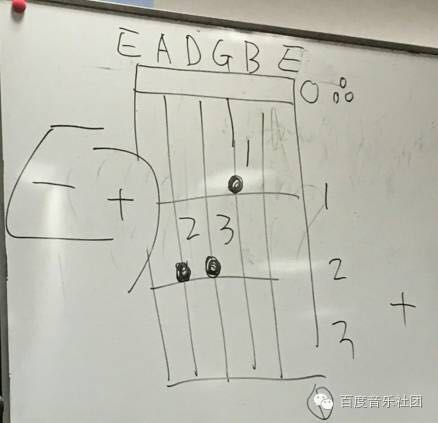 E A D G B E
0
1
1
- +
2 3
2
+
3
百度音乐社团